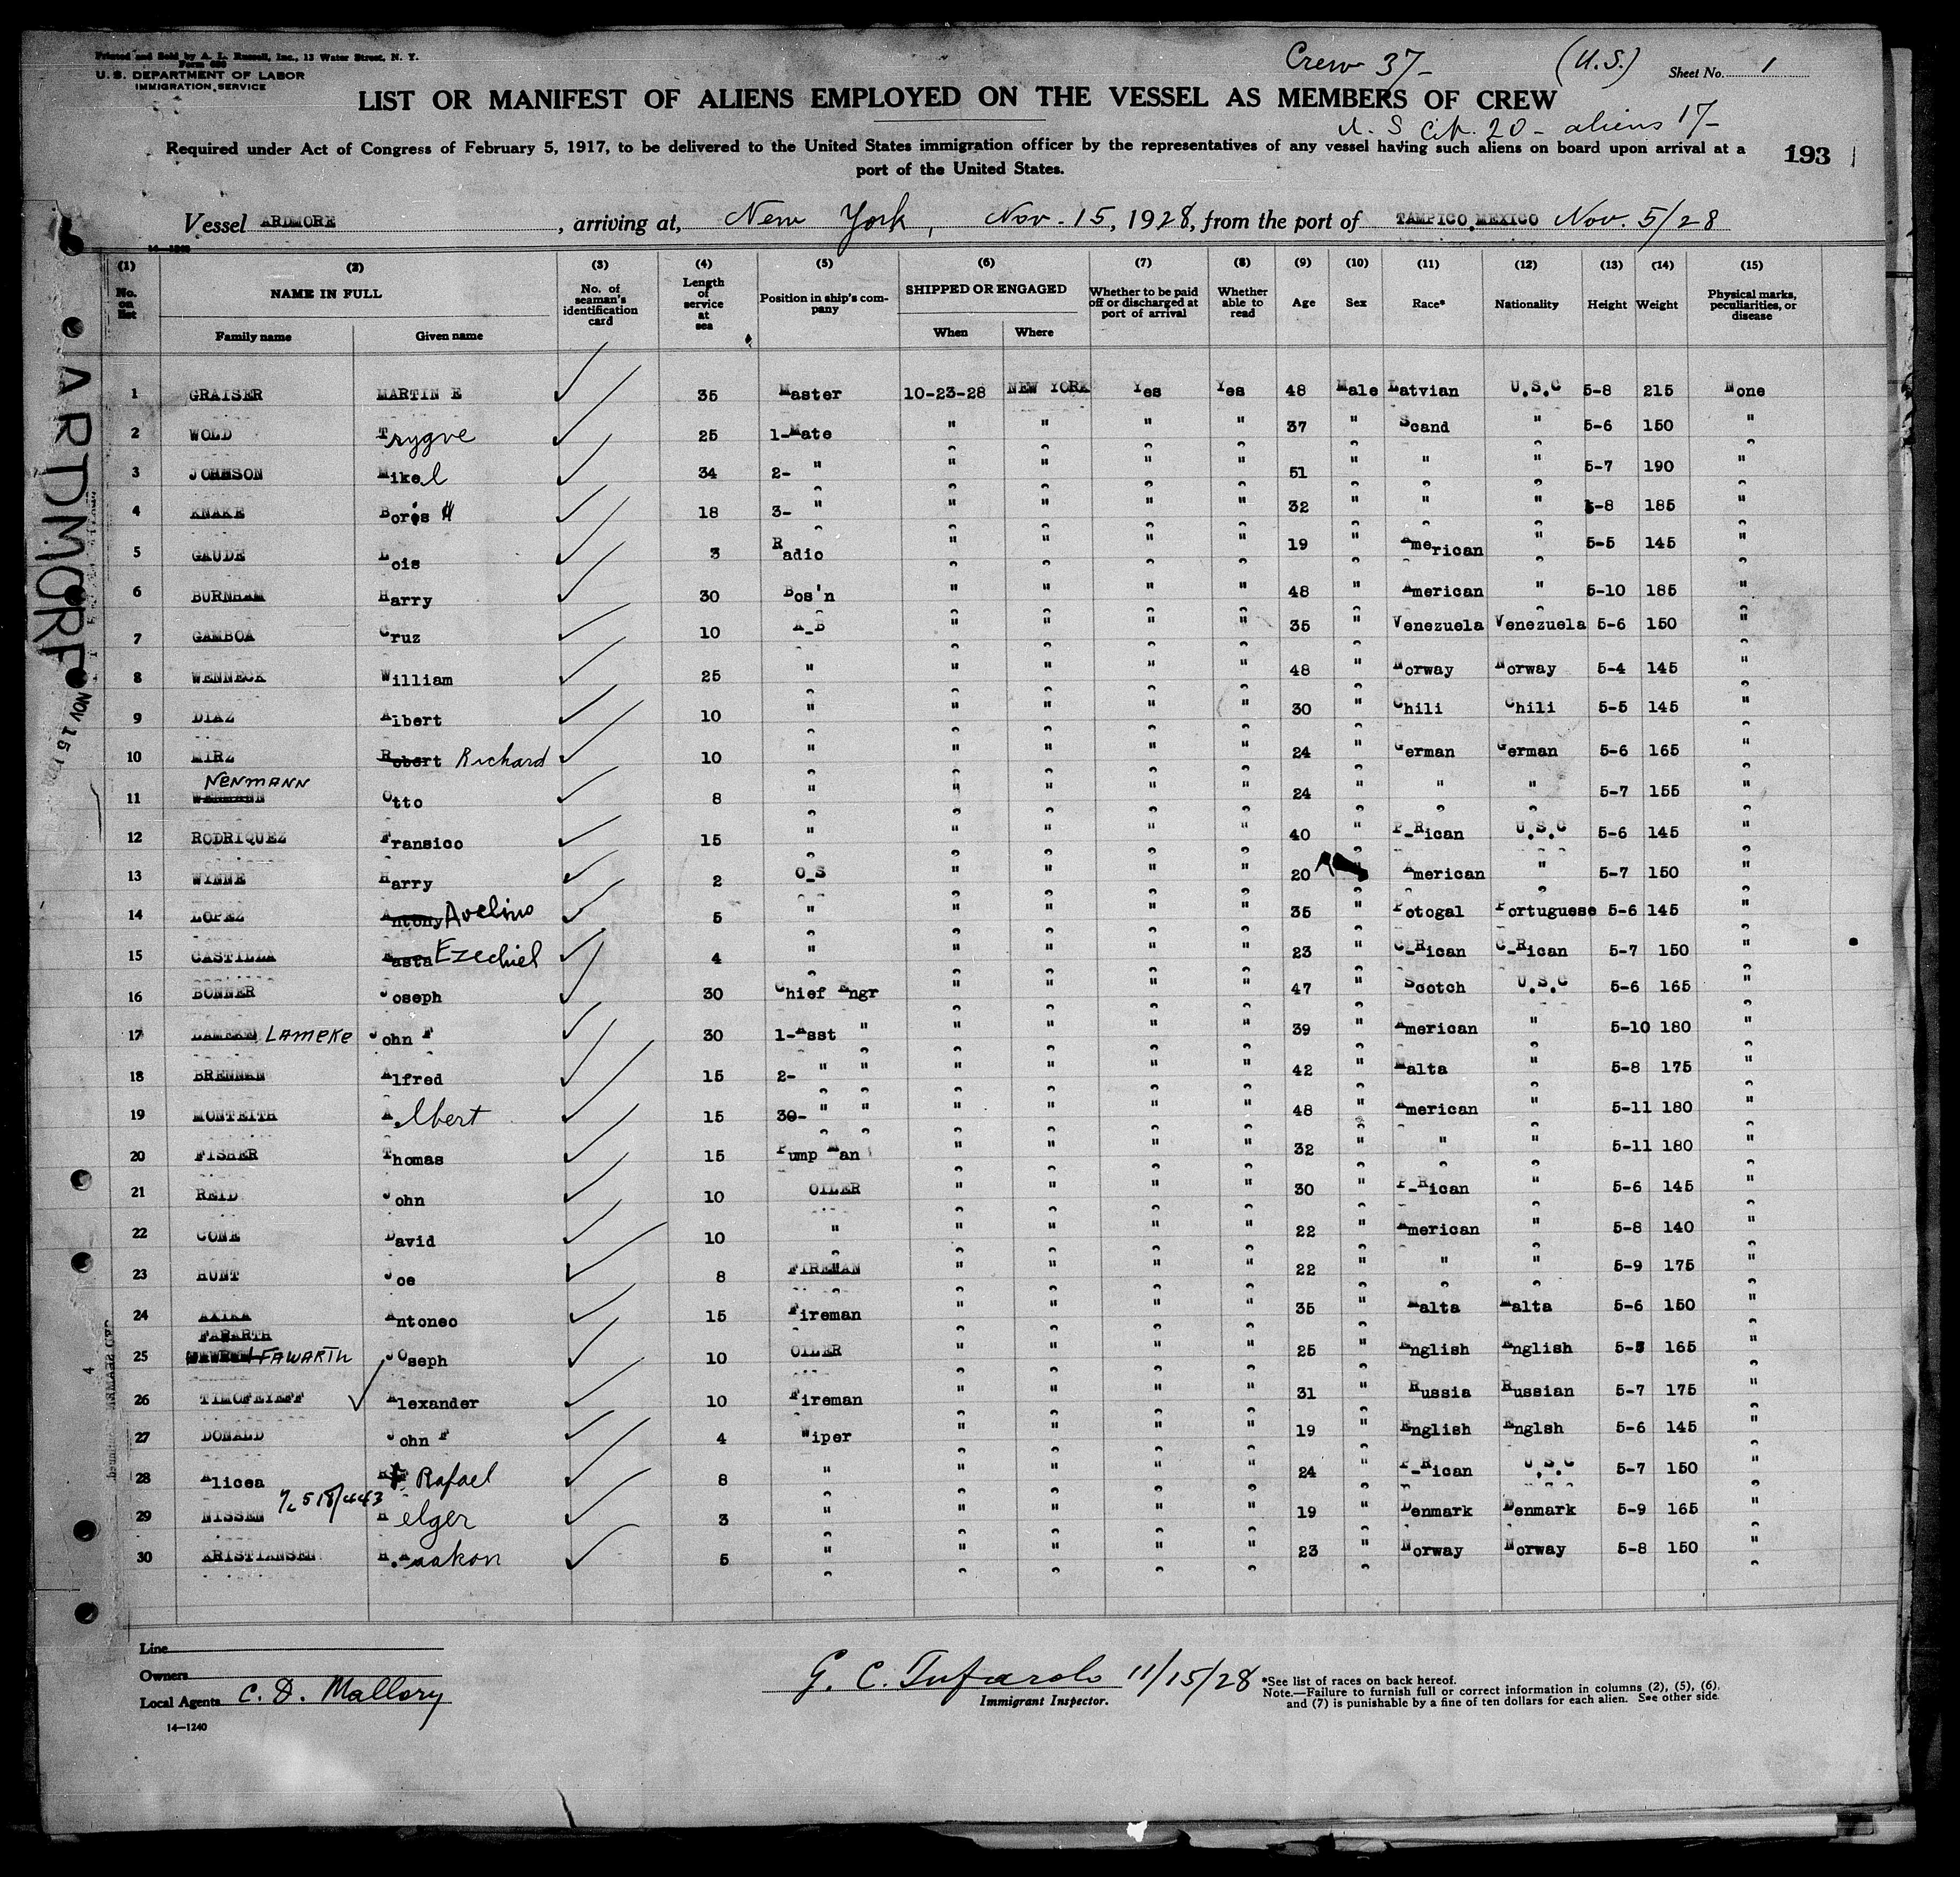 Printed and Sold by A. L. Russell, Inc., 13 Water Street, N. Y.
Form 680
U. S. DEPARTMENT OF LABOR
IMMIGRATION SERVICE
Crew 37- (U.S.) Sheet No. 1
LIST OR MANIFEST OF ALIENS EMPLOYED ON THE VESSEL AS MEMBERS OF CREW
U. S Cit. 20 - aliens 17-
Required under Act of Congress of February 5, 1917, to be delivered to the United States immigration officer by the representatives of any vessel having such aliens on board upon arrival at a
port of the United States.
193
Vessel ARDMORE, arriving at, New York, Nov. 15, 1928, from the port of TAMPICO, MEXICO Nov. 5/28
14-1240
(1) (2) (3) (4) (5) (6) (7) (8) (9) (10) (11) (12) (13) (14) (15)
No. on list NAME IN FULL No. of seaman's identification card Length of service at sea Position in ship's company SHIPPED OR ENGAGED Whether to be paid off or discharged at port of arrival Whether able to read Age Sex Race* Nationality Height Weight Physical marks, peculiarities, or disease
Family name Given name When Where
1 GRAISER MARTIN E 35 Master 10-23-28 NEW YORK Yes Yes 48 Male Latvian U.S.C 5-8 215 None
2 WOLD Trygve 25 1-Mate " " " " 37 " Scand " 5-6 150 "
3 JOHNSON Mikel 34 2- " " " " " 51 " " " 5-7 190 "
4 KNAKE Boris H 18 3- " " " " " 32 " " " 5-8 185 "
5 GAUDE Lois 3 Radio " " " " 19 " American " 5-5 145 "
6 BURNHAM Harry 30 Bos'n " " " " 48 " American " 5-10 185 "
7 GAMBOA Cruz 10 A-B " " " " 35 " Venezuela Venezuela 5-6 150 "
8 WENNECK William 25 " " " " " 48 " Norway Norway 5-4 145 "
9 DIAZ Albert 10 " " " " " 30 " Chili Chili 5-5 145 "
10 MIRZ Robert Richard 10 " " " " " 24 " German German 5-6 165 "
NENMANN
11 WENMANN Otto 8 " " " " " 24 " " " 5-7 155 "
12 RODRIQUEZ Fransico 15 " " " " " 40 " P-Rican U.S.C 5-6 145 "
13 WYNNE Harry 2 O-S " " " " 20 " American " 5-7 150 "
14 LOPEZ Antony Avelino 5 " " " " " 35 " Potogal Portuguese 5-6 145 "
15 CASTILLA Ezechiel 4 " " " " " 23 " C-Rican C-Rican 5-7 150 "
16 BONNER Joseph 30 Chief Engr " " " " 47 " Scotch U.S.C 5-6 165 "
17 LAMEKE John F 30 1-Asst " " " " " 39 " American " 5-10 180 "
18 BRENNAN Alfred 15 2- " " " " " " 42 " Malta " 5-8 175 "
19 MONTEITH Albert 15 30- " " " " " " 48 " American " 5-11 180 "
20 FISHER Thomas 15 Pump Man " " " " 32 " " " 5-11 180 "
21 REID John 10 OILER " " " " 30 " P-Rican " 5-6 145 "
22 CONE David 10 " " " " " 22 " American " 5-8 140 "
23 HUNT Joe 8 FIREMAN " " " " 22 " " " 5-9 175 "
24 AXIKA Antoneo 15 Fireman " " " " 35 " Malta Malta 5-6 150 "
FAWARTH
25 FAWARTH JOseph 10 OILER " " " " 25 " English English 5-5 165 "
26 TIMOFEYEFF Alexander 10 Fireman " " " " 31 " Russia Russian 5-7 175 "
27 DONALD John F 4 Wiper " " " " 19 " English Englsh 5-6 145 "
28 Alicea Rafael 8 " " " " " 24 " P-Rican U.S.C 5-7 150 "
518/443
29 NISSEN Helger 3 " " " " " 19 " Denmark Denmark 5-9 165 "
30 KRISTIANSEN Haakon 5 " " " " " 23 " Norway Norway 5-8 150 "
Line
Owners
Local Agents C. D. Mallory
14-1240
G. C. Tufarolo 11/15/28
Immigrant Inspector.
*See list of races on back hereof.
Note.—Failure to furnish full or correct information in columns (2), (5), (6),
and (7) is punishable by a fine of ten dollars for each alien. See other side.
ARDMORE
NOV 15